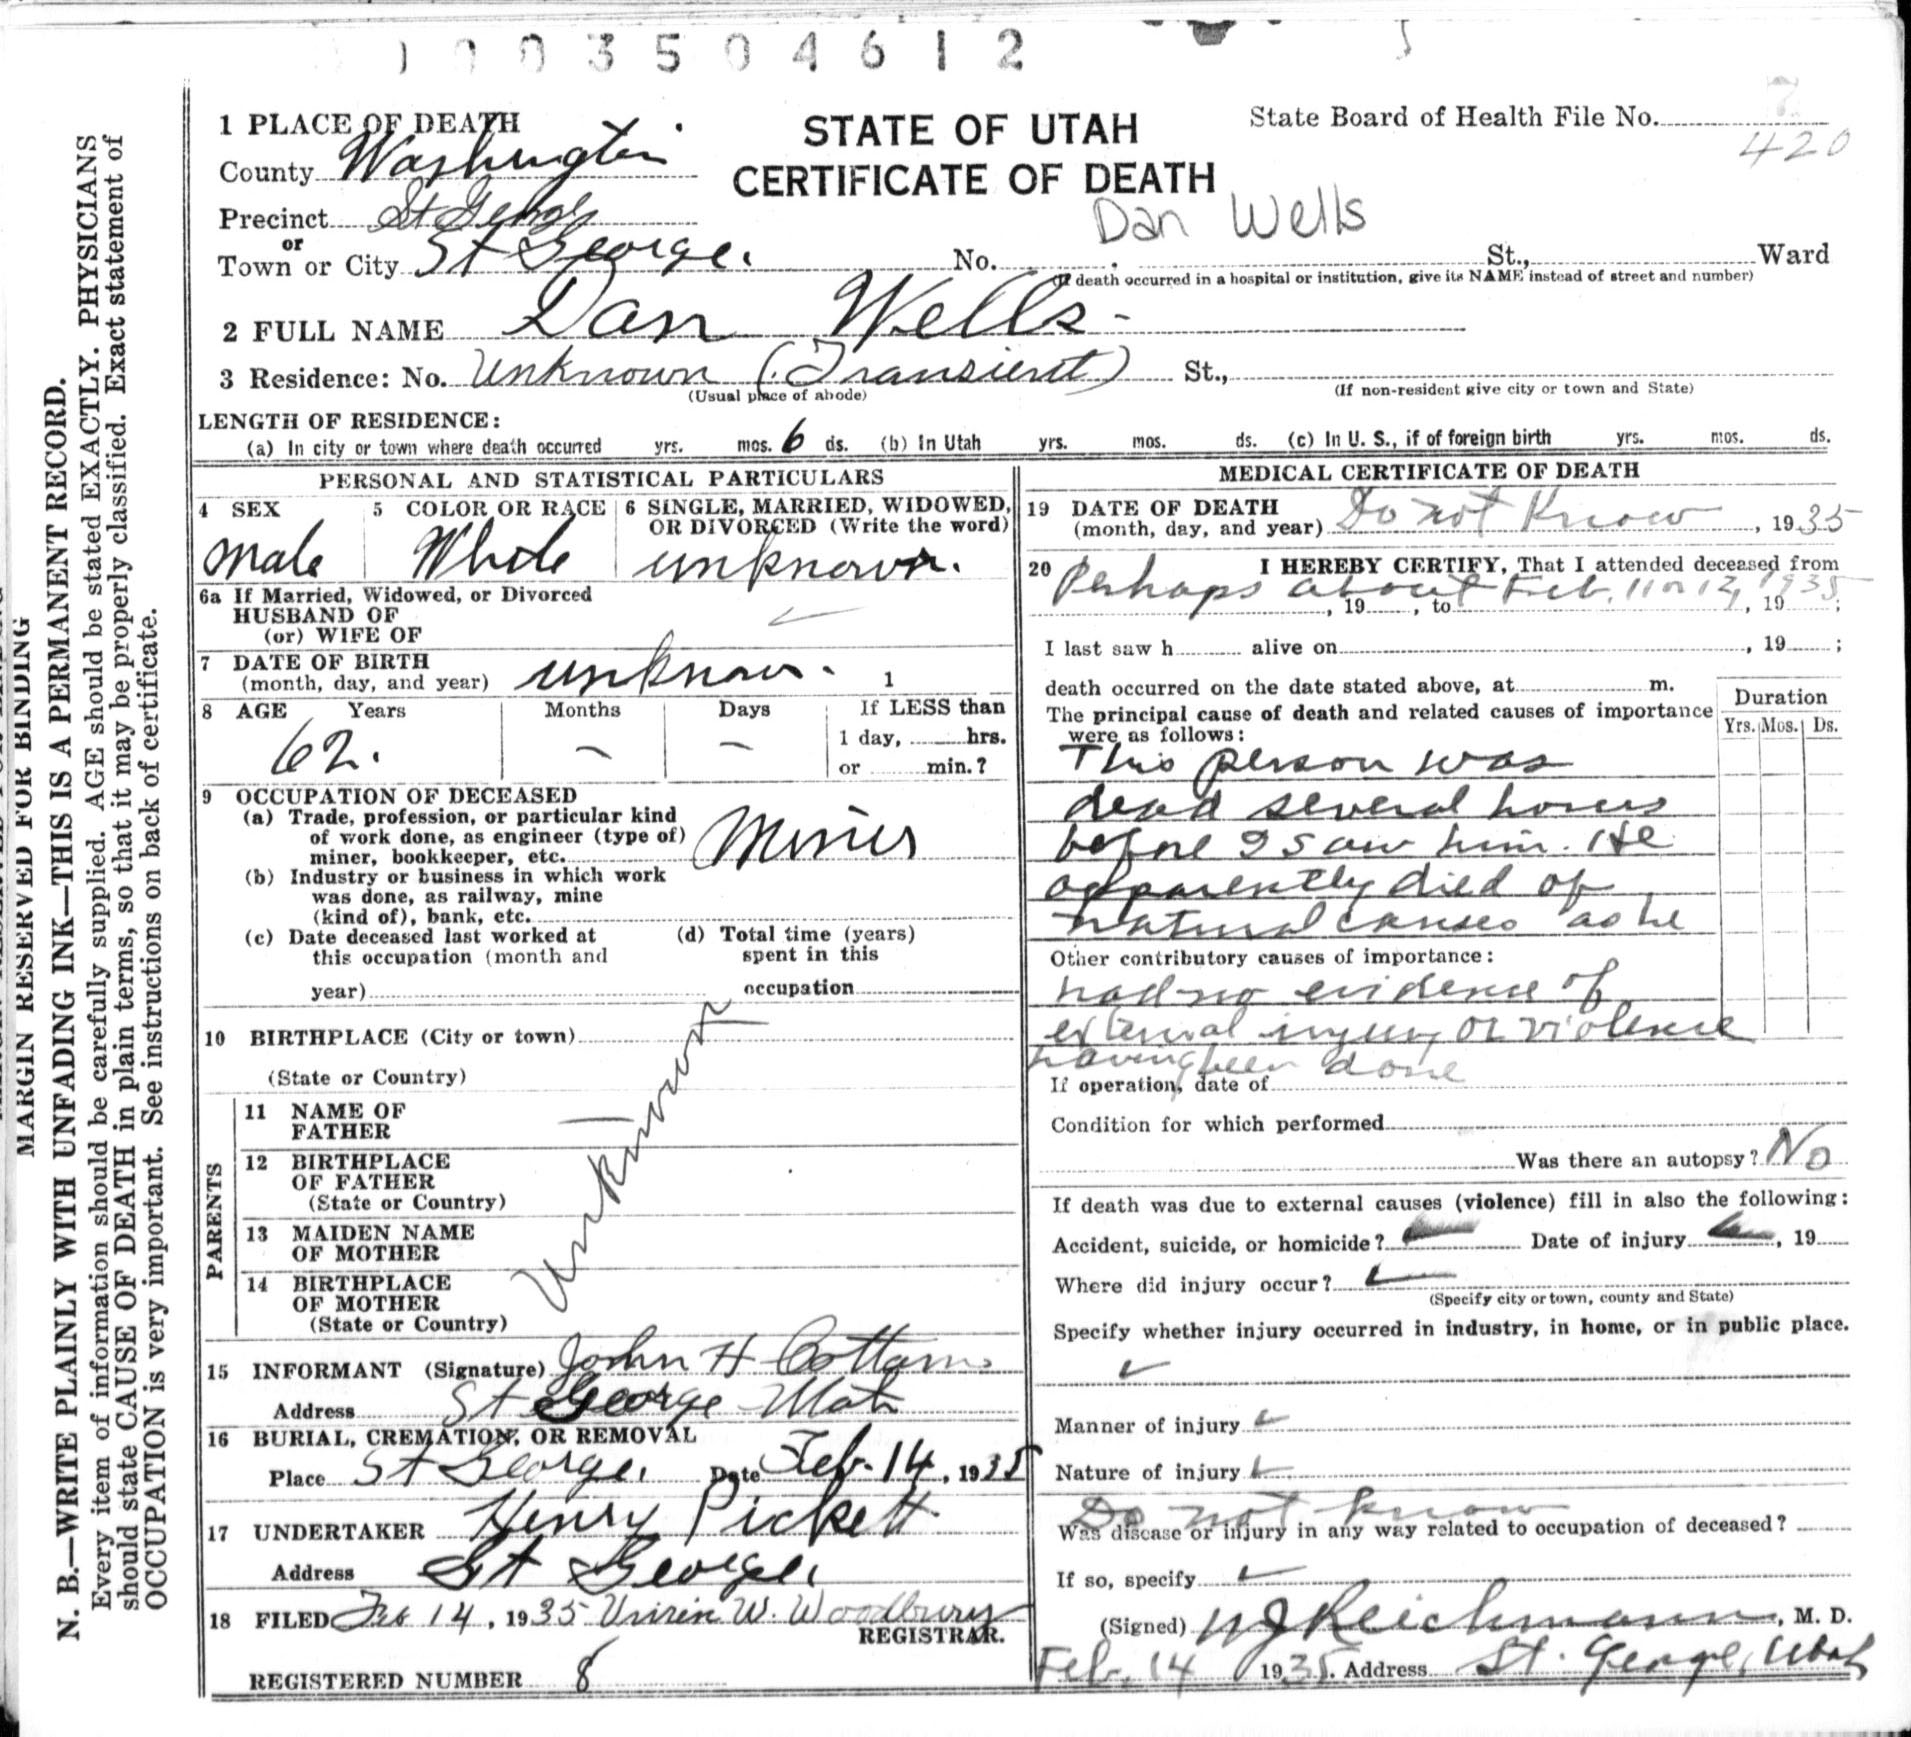 003504612
1 PLACE OF DEATH
STATE OF UTAH
CERTIFICATE OF DEATH
State Board of Health File No.
420
County Washington
Precinct St George
or
Town or City St George. No. St., Ward
Dan Wells
(If death occurred in a hospital or institution, give its NAME instead of street and number)
2 FULL NAME Dan Wells -
3 Residence: No. Unknown (Transient) St.,
(Usual place of abode) (If non-resident give city or town and State)
LENGTH OF RESIDENCE:
(a) In city or town where death occurred yrs. mos. 6 ds. (b) In Utah yrs. mos. ds. (c) In U. S., if of foreign birth yrs. mos. ds.
PERSONAL AND STATISTICAL PARTICULARS
4 SEX 5 COLOR OR RACE 6 SINGLE, MARRIED, WIDOWED,
OR DIVORCED (Write the word)
Male White unknown.
6a If Married, Widowed, or Divorced
HUSBAND OF
(or) WIFE OF
7 DATE OF BIRTH
(month, day, and year) unknown. 1
8 AGE Years Months Days If LESS than
62. — — 1 day, hrs.
or min.?
9 OCCUPATION OF DECEASED
(a) Trade, profession, or particular kind
of work done, as engineer (type of)
miner, bookkeeper, etc. Miner
(b) Industry or business in which work
was done, as railway, mine
(kind of), bank, etc.
(c) Date deceased last worked at (d) Total time (years)
this occupation (month and spent in this
year) occupation
10 BIRTHPLACE (City or town)
(State or Country)
Unknown
PARENTS
11 NAME OF
FATHER
12 BIRTHPLACE
OF FATHER
(State or Country)
13 MAIDEN NAME
OF MOTHER
14 BIRTHPLACE
OF MOTHER
(State or Country)
15 INFORMANT (Signature) John H Cottam
Address St George Utah
16 BURIAL, CREMATION, OR REMOVAL
Place St George. Date Feb. 14, 1935
17 UNDERTAKER Henry Pickett
Address St George.
18 FILED Feb 14, 1935 W. Woodbury
REGISTRAR.
REGISTERED NUMBER 8
MEDICAL CERTIFICATE OF DEATH
19 DATE OF DEATH
(month, day, and year) Do not Know, 1935
20 I HEREBY CERTIFY, That I attended deceased from
Perhaps about Feb. 11 or 12, 1935
, 19 , to , 19 ;
I last saw h alive on , 19 ;
death occurred on the date stated above, at m.
The principal cause of death and related causes of importance
were as follows:
Duration
Yrs. Mos. Ds.
This person was
dead several hours
before I saw him. He
apparently died of
natural causes as he
Other contributory causes of importance:
had no evidence of
external injury or violence
having been done
If operation, date of
Condition for which performed
Was there an autopsy? No
If death was due to external causes (violence) fill in also the following:
Accident, suicide, or homicide? Date of injury , 19
Where did injury occur?
(Specify city or town, county and State)
Specify whether injury occurred in industry, in home, or in public place.
Manner of injury
Nature of injury
Do not know
Was disease or injury in any way related to occupation of deceased?
If so, specify
(Signed) Reichmann, M. D.
Feb. 14 1935. Address St. George, Utah
MARGIN RESERVED FOR BINDING
N. B.—WRITE PLAINLY WITH UNFADING INK—THIS IS A PERMANENT RECORD.
Every item of information should be carefully supplied. AGE should be stated EXACTLY. PHYSICIANS
should state CAUSE OF DEATH in plain terms, so that it may be properly classified. Exact statement of
OCCUPATION is very important. See instructions on back of certificate.